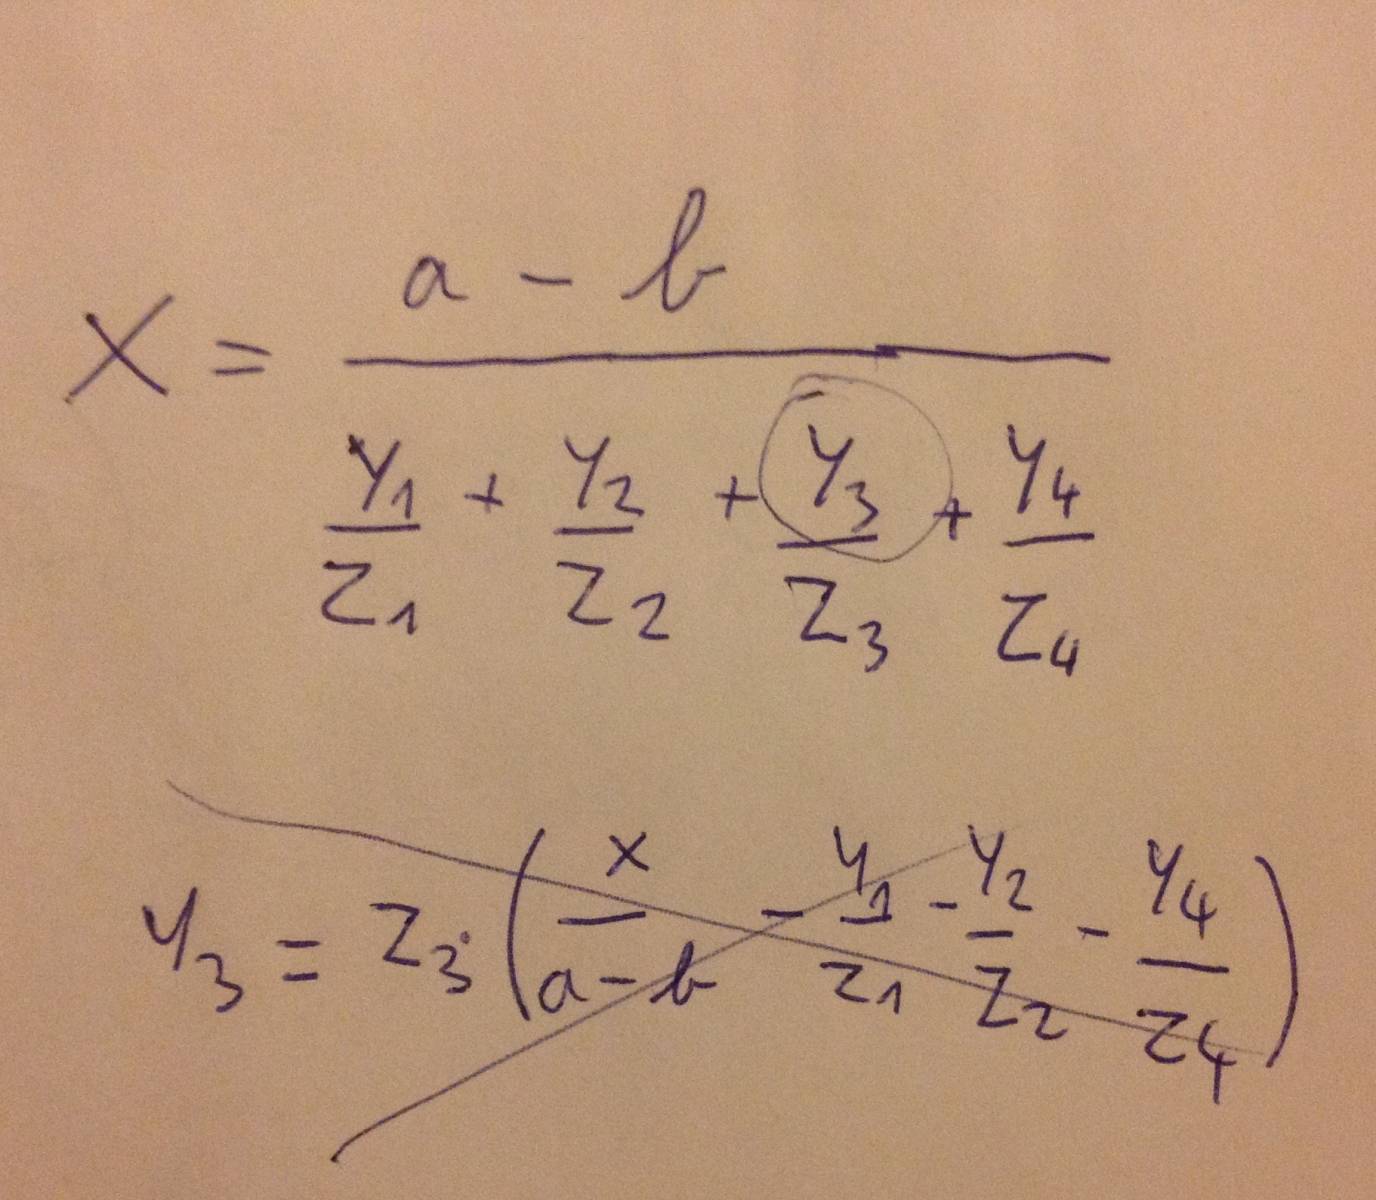 a - b
X = ―――――
y1/z1 + y2/z2 + y3/z3 + y4/z4
y3 = z3·(x/(a-b) - y1/z1 - y2/z2 - y4/z4)